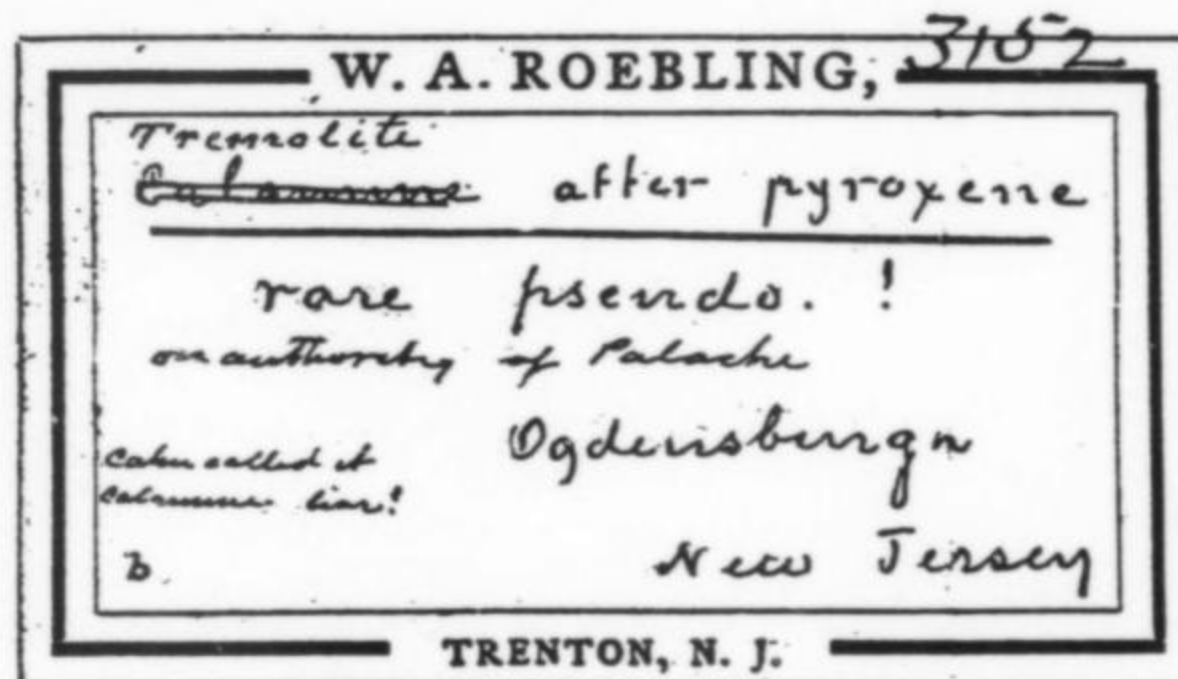 3152
W. A. ROEBLING,
Tremolite
Calamine after pyroxene
rare pseudo. !
on authority of Palache
Ogdensburgn
Cahn called it
calamine liar!
b
New Jersey
TRENTON, N. J.